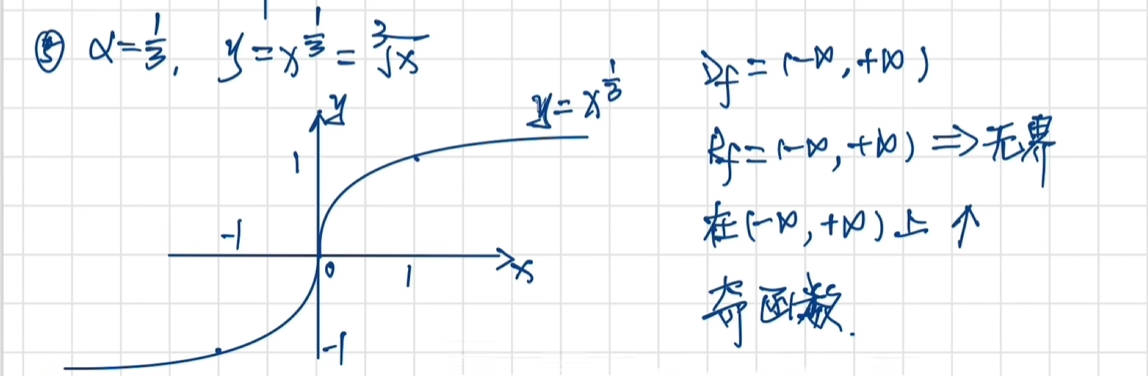 ⑤ α=1/3, y=x^{1/3}=∛x
y
y=x^{1/3}
1
-1
0
1
x
-1
Df=(-∞,+∞)
Rf=(-∞,+∞)⇒无界
在(-∞,+∞)上↑
奇函数.